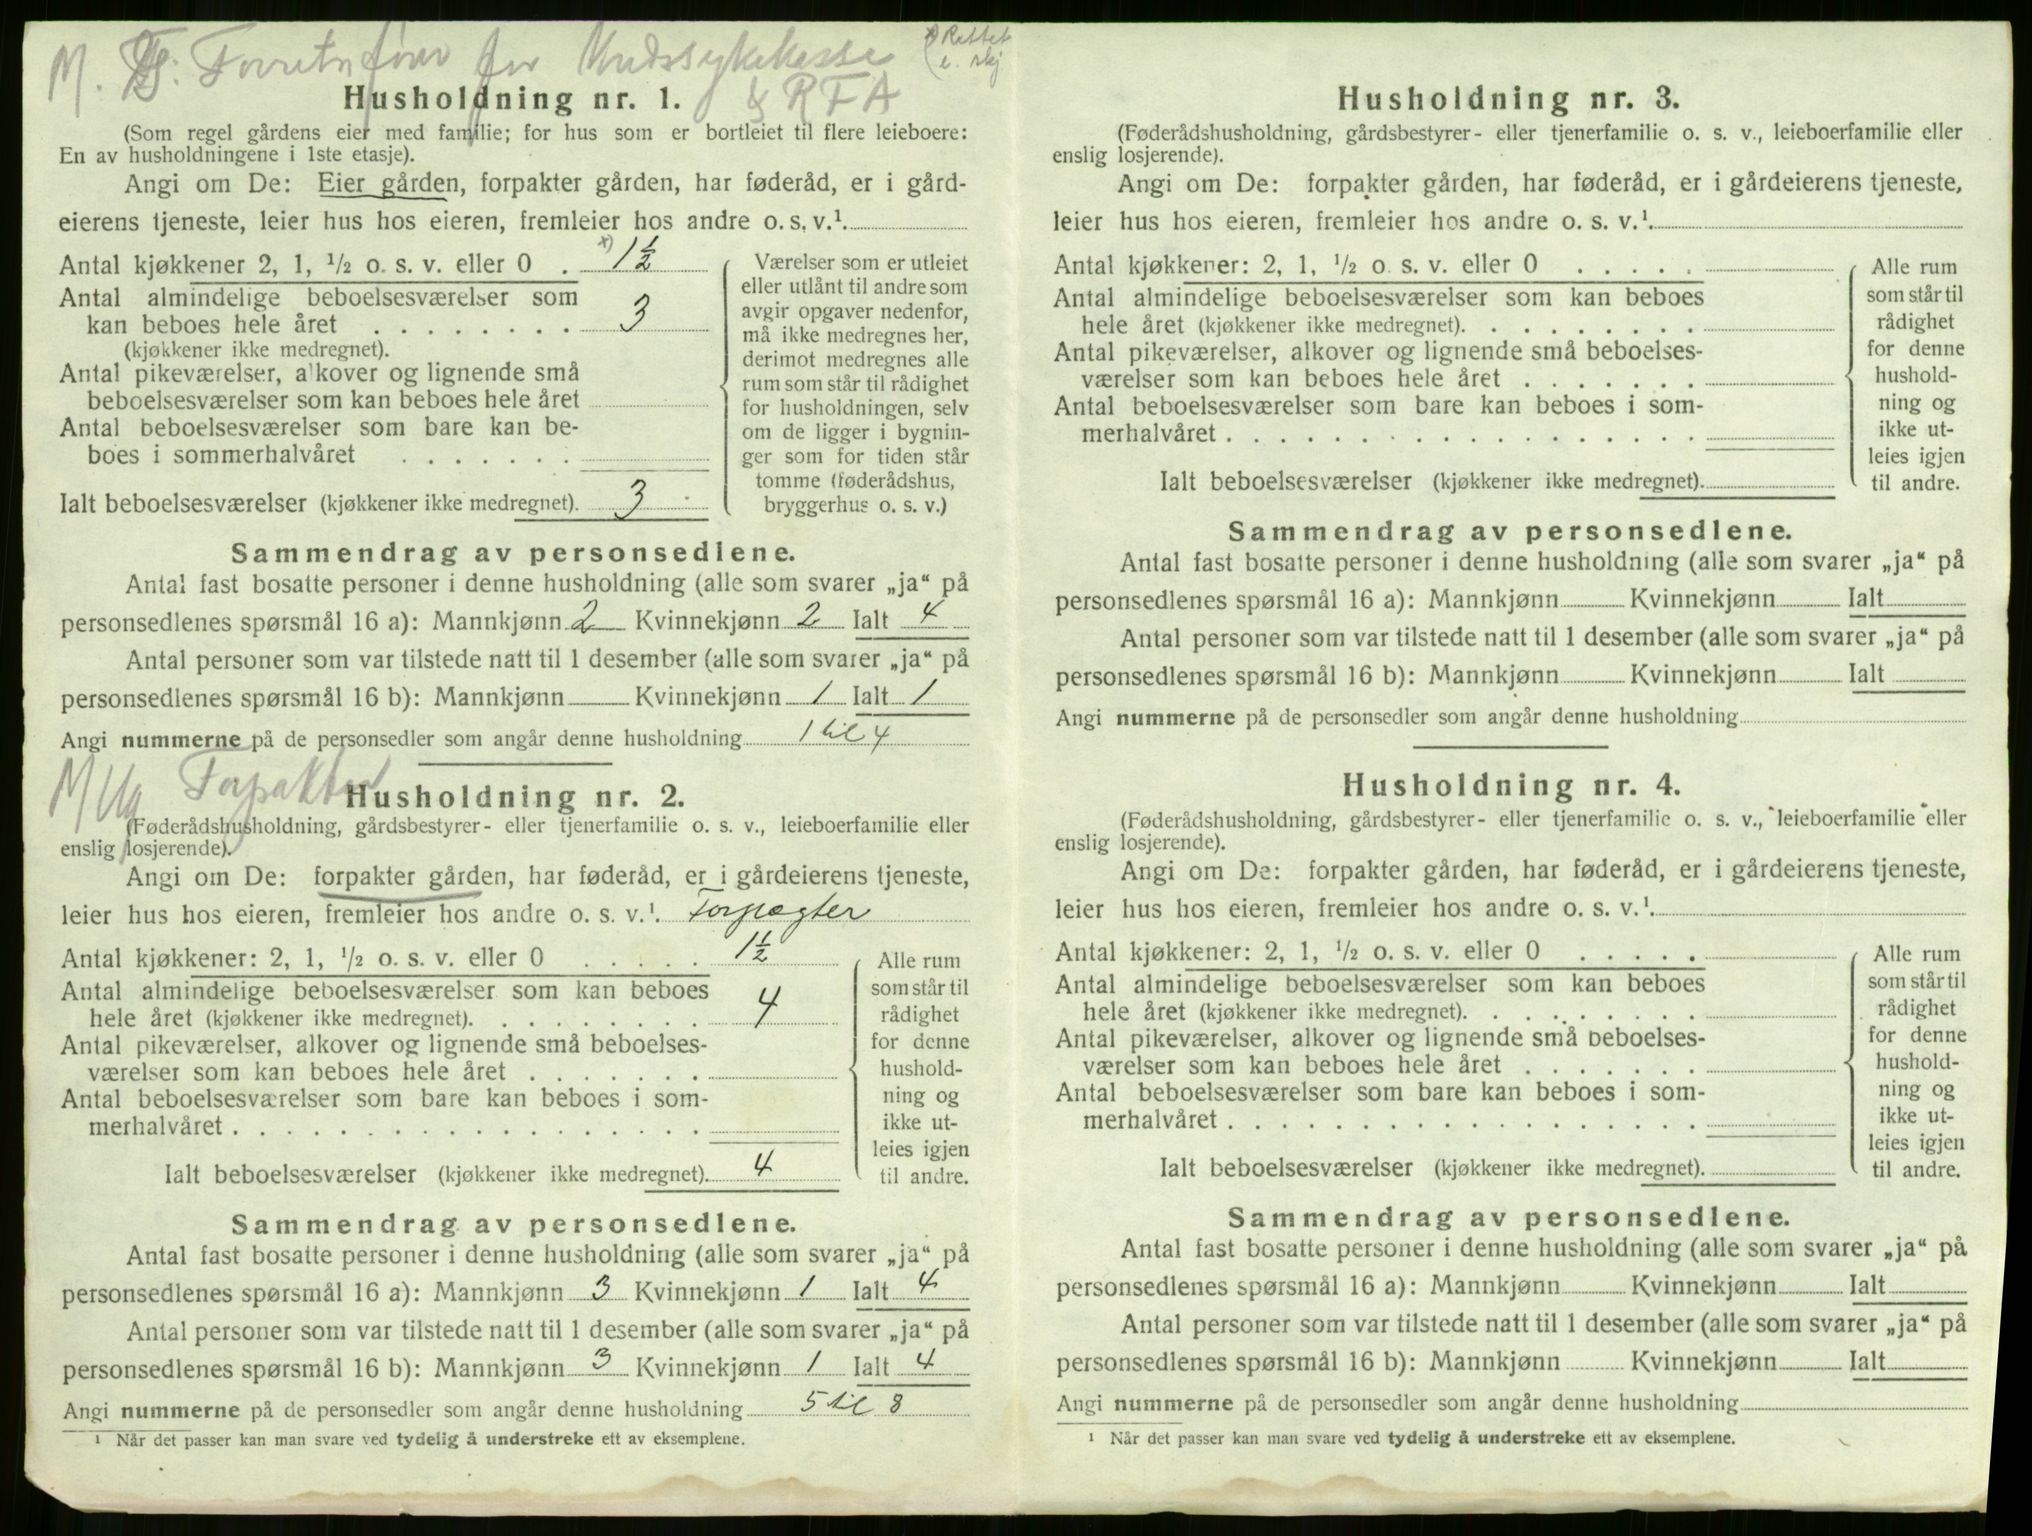 M. Forretnfører for Kredssykekasse
& RFA
Rettet
i. skj
Husholdning nr. 1.
(Som regel gårdens eier med familie; for hus som er bortleiet til flere leieboere:
En av husholdningene i 1ste etasje).
Angi om De: Eier gården, forpakter gården, har føderåd, er i gård-
eierens tjeneste, leier hus hos eieren, fremleier hos andre o. s. v.¹.
Antal kjøkkener 2, 1, ½ o. s. v. eller 0 . x) 1½
Antal almindelige beboelsesværelser som
kan beboes hele året . . . . . . . . 3
(kjøkkener ikke medregnet).
Antal pikeværelser, alkover og lignende små
beboelsesværelser som kan beboes hele året
Antal beboelsesværelser som bare kan be-
boes i sommerhalvåret . . . . . . .
Ialt beboelsesværelser (kjøkkener ikke medregnet). 3
Værelser som er utleiet
eller utlånt til andre som
avgir opgaver nedenfor,
må ikke medregnes her,
derimot medregnes alle
rum som står til rådighet
for husholdningen, selv
om de ligger i bygnin-
ger som for tiden står
tomme (føderådshus,
bryggerhus o. s. v.)
Sammendrag av personsedlene.
Antal fast bosatte personer i denne husholdning (alle som svarer „ja“ på
personsedlenes spørsmål 16 a): Mannkjønn 2 Kvinnekjønn 2 Ialt 4
Antal personer som var tilstede natt til 1 desember (alle som svarer „ja“ på
personsedlenes spørsmål 16 b): Mannkjønn Kvinnekjønn 1 Ialt 1
Angi nummerne på de personsedler som angår denne husholdning 1 til 4
Forpakter
Husholdning nr. 2.
(Føderådshusholdning, gårdsbestyrer- eller tjenerfamilie o. s. v., leieboerfamilie eller
enslig losjerende).
Angi om De: forpakter gården, har føderåd, er i gårdeierens tjeneste,
leier hus hos eieren, fremleier hos andre o. s. v.¹. Forpagter
Antal kjøkkener: 2, 1, ½ o. s. v. eller 0 . . . . . 1½
Antal almindelige beboelsesværelser som kan beboes
hele året (kjøkkener ikke medregnet). . . . . . . . . 4
Antal pikeværelser, alkover og lignende små beboelses-
værelser som kan beboes hele året . . . . . . .
Antal beboelsesværelser som bare kan beboes i som-
merhalvåret . . . . . . . . . . . . . . . . . .
Ialt beboelsesværelser (kjøkkener ikke medregnet). 4
Alle rum
som står til
rådighet
for denne
hushold-
ning og
ikke ut-
leies igjen
til andre.
Sammendrag av personsedlene.
Antal fast bosatte personer i denne husholdning (alle som svarer „ja“ på
personsedlenes spørsmål 16 a): Mannkjønn 3 Kvinnekjønn 1 Ialt 4
Antal personer som var tilstede natt til 1 desember (alle som svarer „ja“ på
personsedlenes spørsmål 16 b): Mannkjønn 3 Kvinnekjønn 1 Ialt 4
Angi nummerne på de personsedler som angår denne husholdning 5 til 8
¹ Når det passer kan man svare ved tydelig å understreke ett av eksemplene.
Husholdning nr. 3.
(Føderådshusholdning, gårdsbestyrer- eller tjenerfamilie o. s. v., leieboerfamilie eller
enslig losjerende).
Angi om De: forpakter gården, har føderåd, er i gårdeierens tjeneste,
leier hus hos eieren, fremleier hos andre o. s. v.¹.
Antal kjøkkener: 2, 1, ½ o. s. v. eller 0 . . . . .
Antal almindelige beboelsesværelser som kan beboes
hele året (kjøkkener ikke medregnet). . . . . . . . .
Antal pikeværelser, alkover og lignende små beboelses-
værelser som kan beboes hele året . . . . . . .
Antal beboelsesværelser som bare kan beboes i som-
merhalvåret . . . . . . . . . . . . . . . . . .
Ialt beboelsesværelser (kjøkkener ikke medregnet).
Alle rum
som står til
rådighet
for denne
hushold-
ning og
ikke ut-
leies igjen
til andre.
Sammendrag av personsedlene.
Antal fast bosatte personer i denne husholdning (alle som svarer „ja“ på
personsedlenes spørsmål 16 a): Mannkjønn Kvinnekjønn Ialt
Antal personer som var tilstede natt til 1 desember (alle som svarer „ja“ på
personsedlenes spørsmål 16 b): Mannkjønn Kvinnekjønn Ialt
Angi nummerne på de personsedler som angår denne husholdning
Husholdning nr. 4.
(Føderådshusholdning, gårdsbestyrer- eller tjenerfamilie o. s. v., leieboerfamilie eller
enslig losjerende).
Angi om De: forpakter gården, har føderåd, er i gårdeierens tjeneste,
leier hus hos eieren, fremleier hos andre o. s. v.¹.
Antal kjøkkener: 2, 1, ½ o. s. v. eller 0 . . . . .
Antal almindelige beboelsesværelser som kan beboes
hele året (kjøkkener ikke medregnet). . . . . . . . .
Antal pikeværelser, alkover og lignende små beboelses-
værelser som kan beboes hele året . . . . . . .
Antal beboelsesværelser som bare kan beboes i som-
merhalvåret . . . . . . . . . . . . . . . . . .
Ialt beboelsesværelser (kjøkkener ikke medregnet).
Alle rum
som står til
rådighet
for denne
hushold-
ning og
ikke ut-
leies igjen
til andre.
Sammendrag av personsedlene.
Antal fast bosatte personer i denne husholdning (alle som svarer „ja“ på
personsedlenes spørsmål 16 a): Mannkjønn Kvinnekjønn Ialt
Antal personer som var tilstede natt til 1 desember (alle som svarer „ja“ på
personsedlenes spørsmål 16 b): Mannkjønn Kvinnekjønn Ialt
Angi nummerne på de personsedler som angår denne husholdning
¹ Når det passer kan man svare ved tydelig å understreke ett av eksemplene.